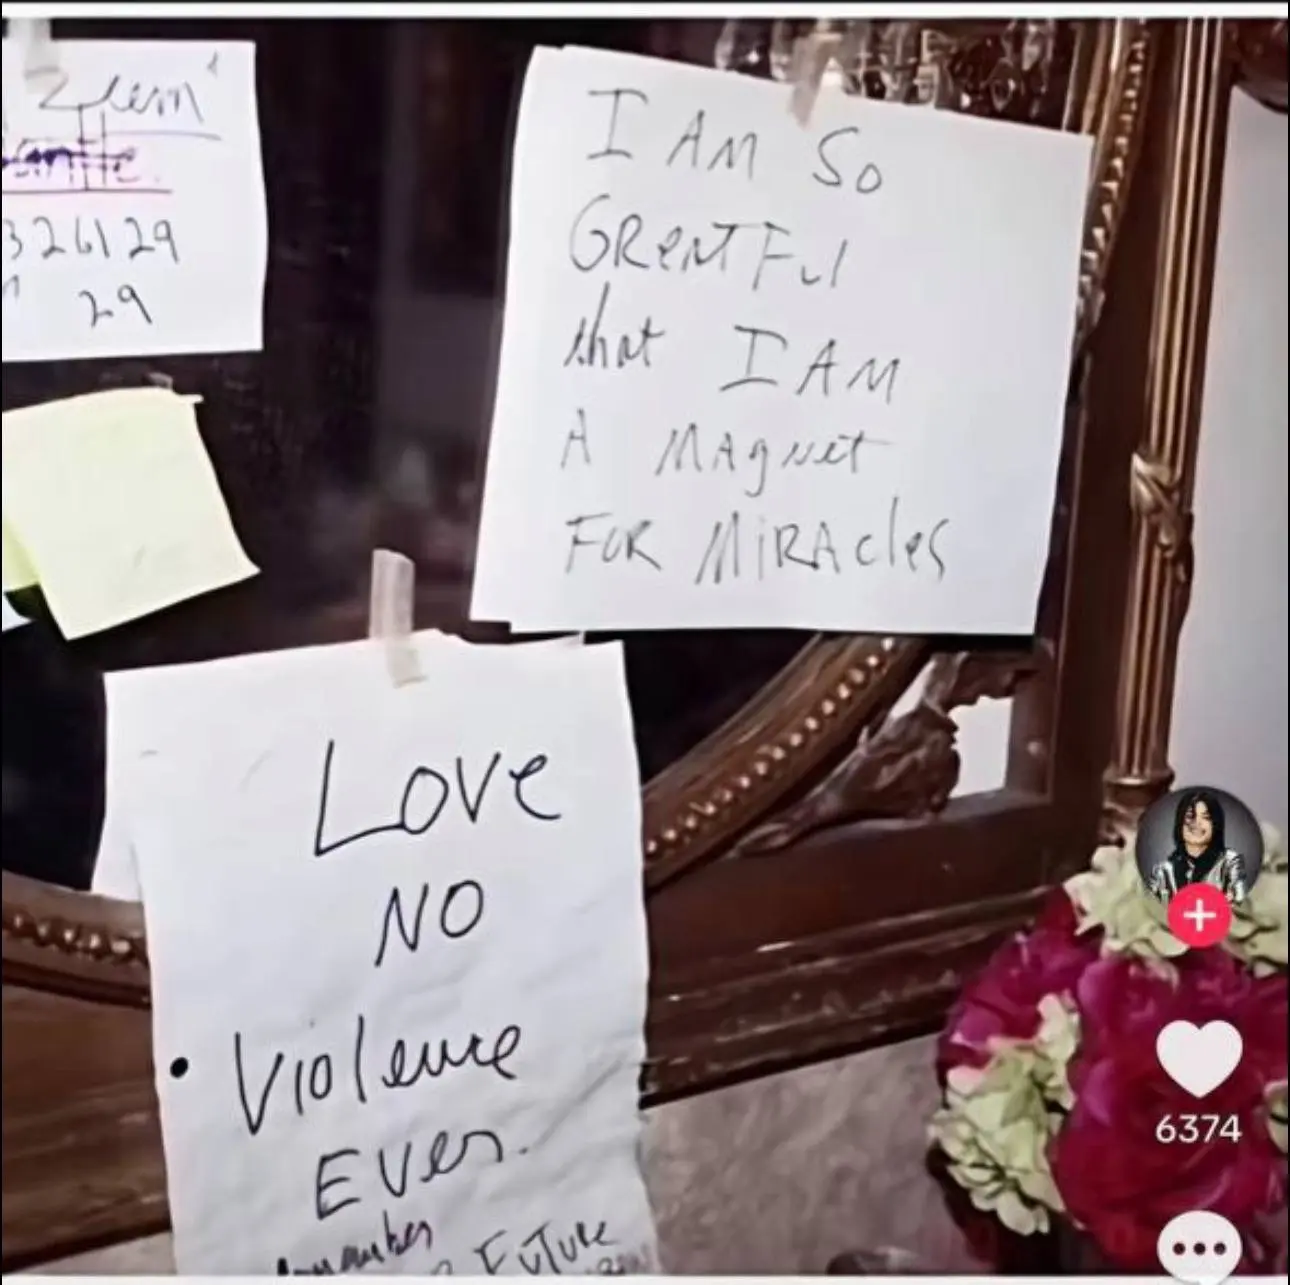 326129
29
I AM So
GReatFul
that I AM
A MAgnet
FOR MiRAcles
Love
NO
Violence
Ever.
Future
6374